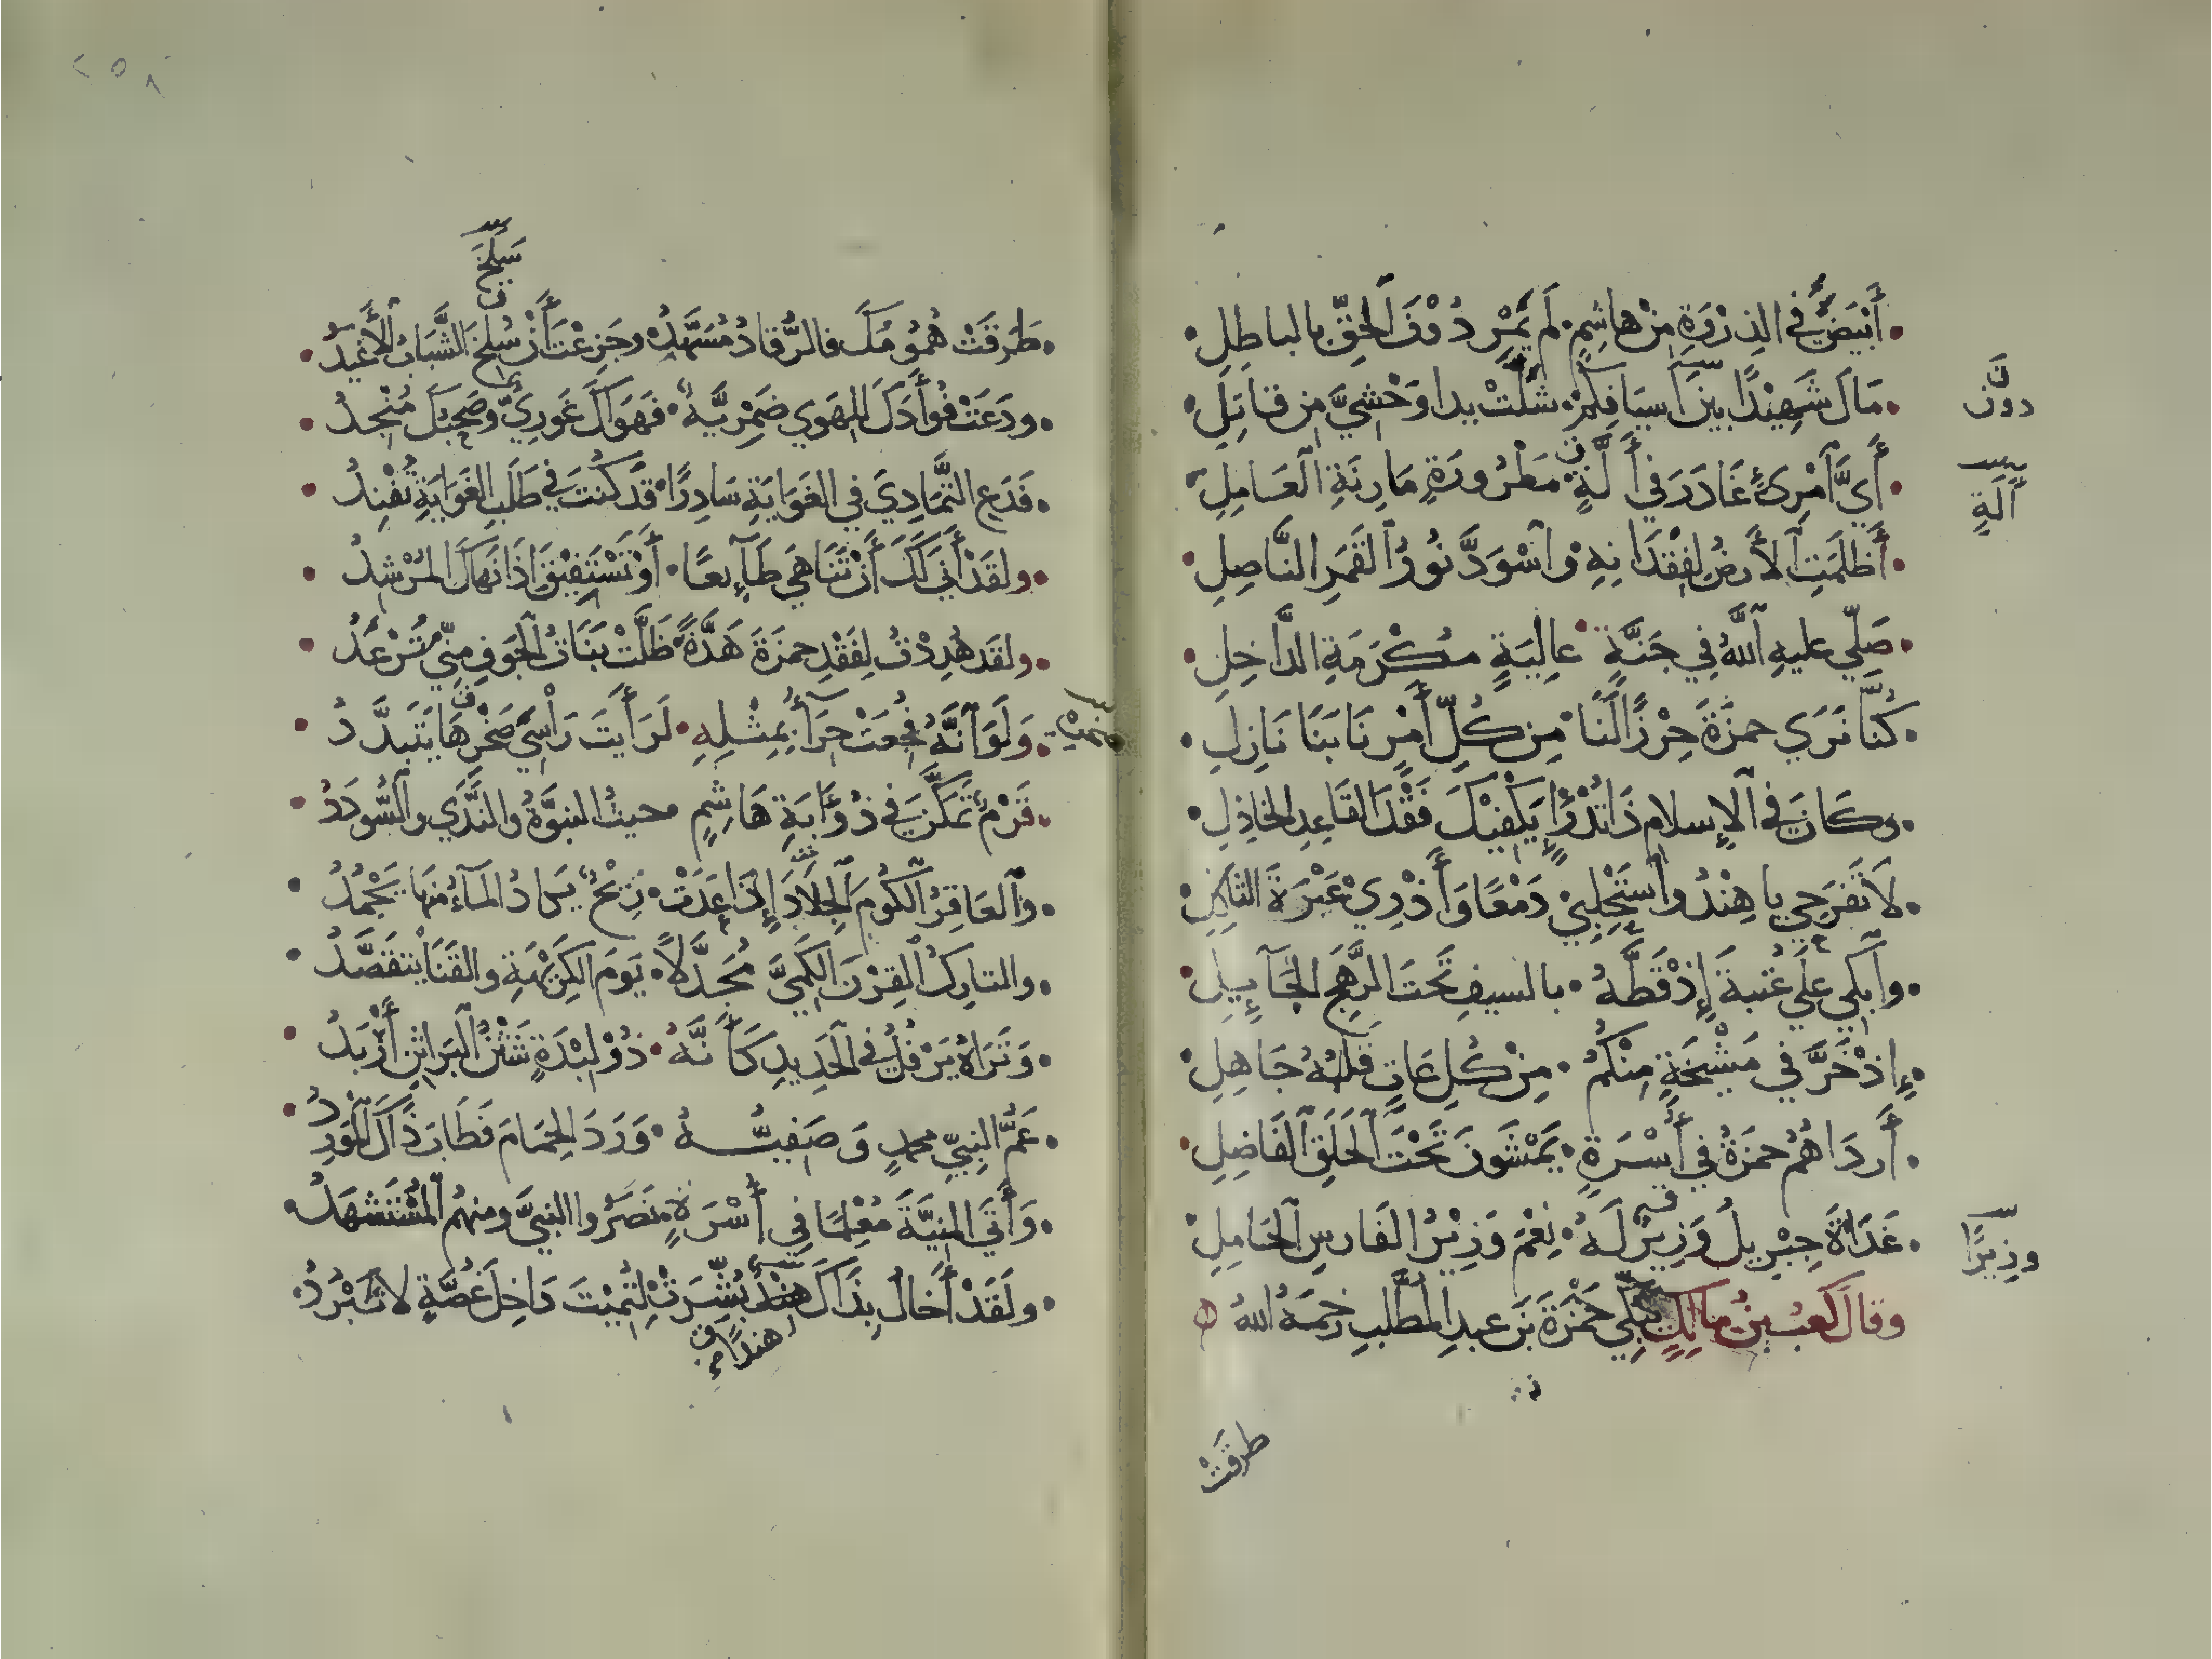 أَبْيَضُ في الذِرْوَةِ مِنْ هاشِمٍ لَم يَمْرِ دُوْنَ الحَقِّ بالباطِلِ
مَالَ شَهِيْدًا بَيْنَ أَسيَافِكُمْ شَلَّتْ يدا وَحْشيَّ مِن قاتِلِ
دونَ
أَيَّ امْرِئٍ غَادَرَ في أَلَّةٍ مَطْرُورَةٍ مَارِنَةِ العَامِلِ
آلَةٍ
أَظلَمَتِ الأَرضُ لِفِقْدَانِهِ وَاسْوَدَّ نُورُ القَمَرِ النَّاصِلِ
صَلّي عليهِ اللهُ في جَنَّةٍ عالِيَةٍ مُكْرَمَةِ الدَّاخِلِ
كُنَّا نَرَي حمزَةَ حِرْزًا لَنَا مِن كُلِّ أَمْرٍ نَابَنَا نَازِلِ
وكَانَ في الإِسلامِ ذَا تُدْرَؤٍ يَكْفِيْكَ فَقْدَ القَاعِدِ الخَاذِلِ
لَا تَفرَحِي يا هِنْدُ واستَحْلِبِيْ دَمْعًا وَأَذْرِيْ عَبْرَةَ الثاكِلِ
وابْكي عَلَي عُتبةَ إِذْ قَطَّهُ بالسيفِ تَحتَ الرَّهَجِ الجَآيِلِ
إِذْ خَرَّ في مَشْيَخَةٍ مِنْكُمُ مِنْ كُلِ عَاتٍ قَلبُهُ جَاهِلِ
أَردَاهُمُ حمزَةُ في أُسْرَةٍ يَمْشُونَ تَحْتَ الحَلَقِ الفَاضِلِ
غَدَاةَ جِبْرِيلُ وَزِيرٌ لَهُ نِعْمَ وَزِيْرُ الفَارسِ الحَامِلِ
وزِيرًا
وقالَ كَعبُ بنُ مالِكٍ يَبْكِي حَمْزَةَ بَنَ عبدِ المطَّلبِ رَحِمَهُ اللهُ
طرقَتْ
٢٥٨
سَلْخَ
طَرَقَتْ هُمُومُكَ فالرُّقادُ مُسَهَّدُ وجَزِعْتَ أَنْ سُلِخَ الشَّبَابُ الأَغْيَدُ
ودَعَتْ فُوأَدَكَ للهَوي ضَمْرِيَّةٌ فَهَوَاكَ غَورِيٌّ وصَحبُكَ مُنْجِدُ
فَدَعِ التَّمَادِيَ في الغَوَايَةِ سَادِرًا قَد كُنتَ في طَلَبِ الغَوَايَةِ تُفْنَدُ
ولقَدْ أَنَي لَكَ أَنْ تَنَاهَي طَآيِعًا أَوْ تَسْتَفِيْقَ إِذَا نَهَاكَ المُرْشِدُ
ولقَد هُدِدْتُ لِفَقْدِ حمزَةَ هَدَّةً ظَلَّتْ بَنَاتُ الجَوفِ مِنّي تُرْعَدُ
وَلَوَ انَّهُ فُجِعَتْ حِرَآءُ بِمِثْلِهِ لَرَأَيتَ رَاْسِي صَخْرِهَا يَتَبدَّدُ
قَرْمٌ تَمَكَّنَ في ذُوَّابَةِ هَاشِمٍ حيثُ النبوَّةُ والنَّدَي والسُّودَدُ
وَالعَاقِرُ الكُومَ الجِلَادَ إِذَا غَدَتْ رِيْحٌ يكادُ المَآءُ مِنهَا يَجْمُدُ
والتارِكُ القِرْنَ الكَمِيَّ مُجَدَّلًا يَومَ الكَرِيْهَةِ والقَنَا يَتقَصَّدُ
وَتَرَاهُ يَرْفُلُ في الحَدِيدِ كَأَنَّهُ ذُوْ لِبْدَةٍ شَثْنُ البَراثِنِ أَرْبَدُ
عَمُّ النبيِّ محمدٍ وَصَفِيُّهُ وَرَدَ الحِمَامَ فَطَابَ ذَاكَ المَورِدُ
وَأَتَي المَنِيَّةَ مُعْلِمًا في أُسْرَةٍ نَصَرُوا النبيَّ ومِنهُم المُسْتَشهَدُ
ولَقَدْ أَخَالُ بِذَاكَ هِنْدَ بُشِّرَتْ لِتُمِيْتَ دَاخِلَ غُصَّةٍ لا تَبْرُدُ
هندًا